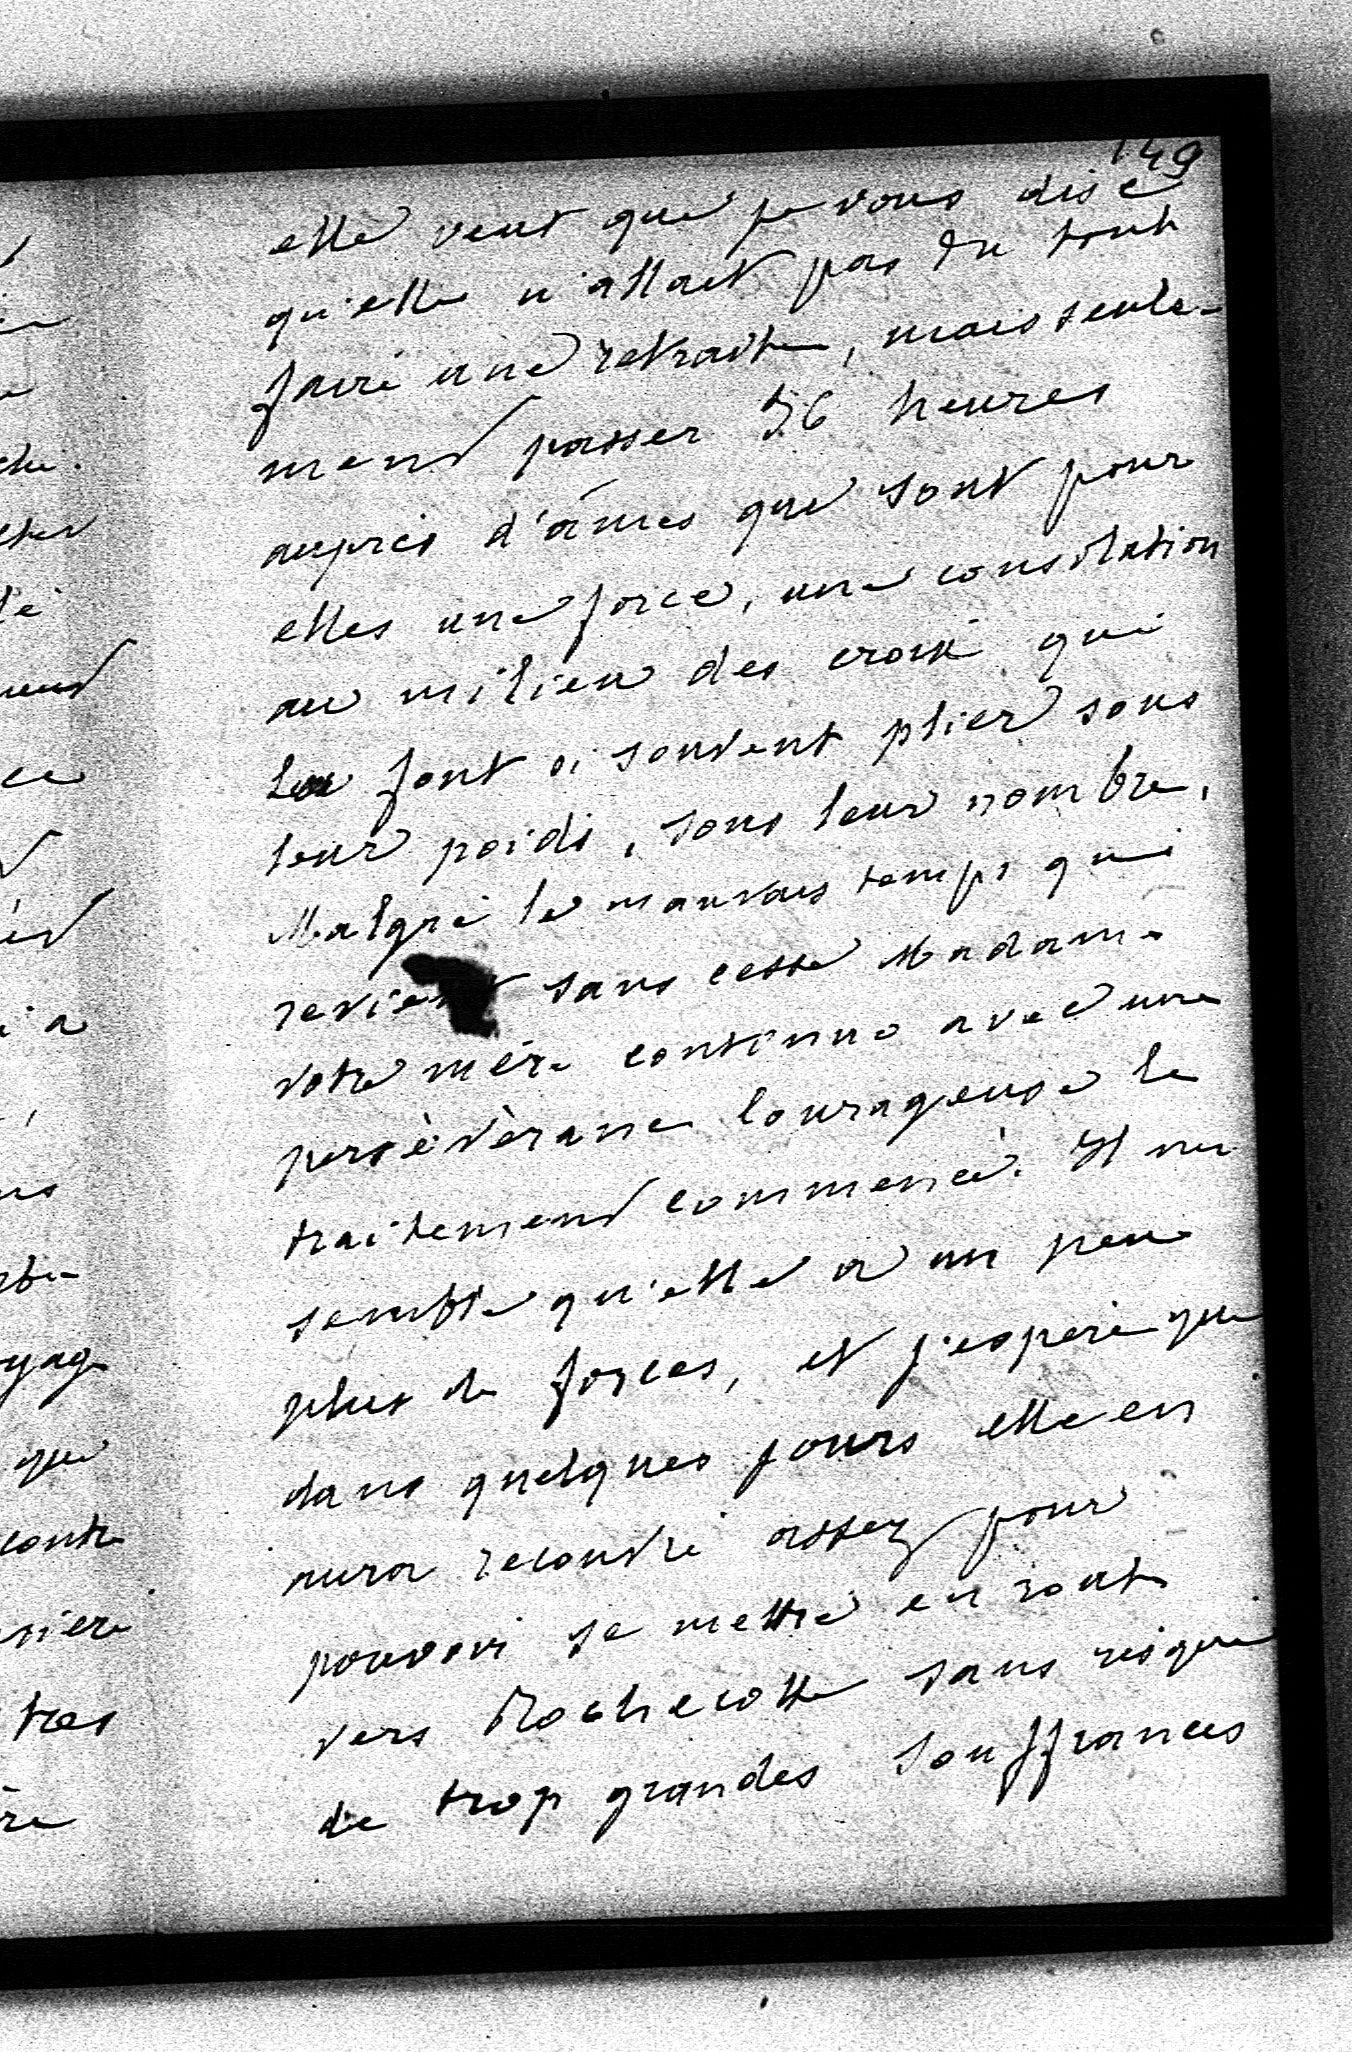 149
elle veut que je vous dise
qu'elle n'allait pas du tout
faire une retraite, mais seule-
ment passer 36 heures
auprès d'âmes qui sont pour
elles une force, une consolation
au milieu des croix qui
la font si souvent plier sous
leur poids, sous leur nombre.
Malgré le mauvais temps qui
revient sans cesse Madame
votre mère continue avec une
persévérance courageuse le
traitement commencé. Il me
semble qu'elle a un peu
plus de forces, et j'espère que
dans quelques jours elle en
aura recouvré assez pour
pouvoir se mettre en route
vers Rochecotte sans risque
de trop grandes souffrances